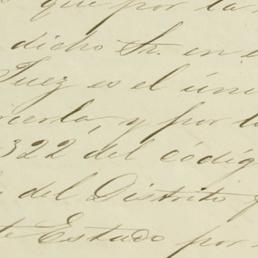 que por la
dicho Sr. en e
Juez es el úni
cierta, y por lo
322 del códig
del Distrito
te Estado por